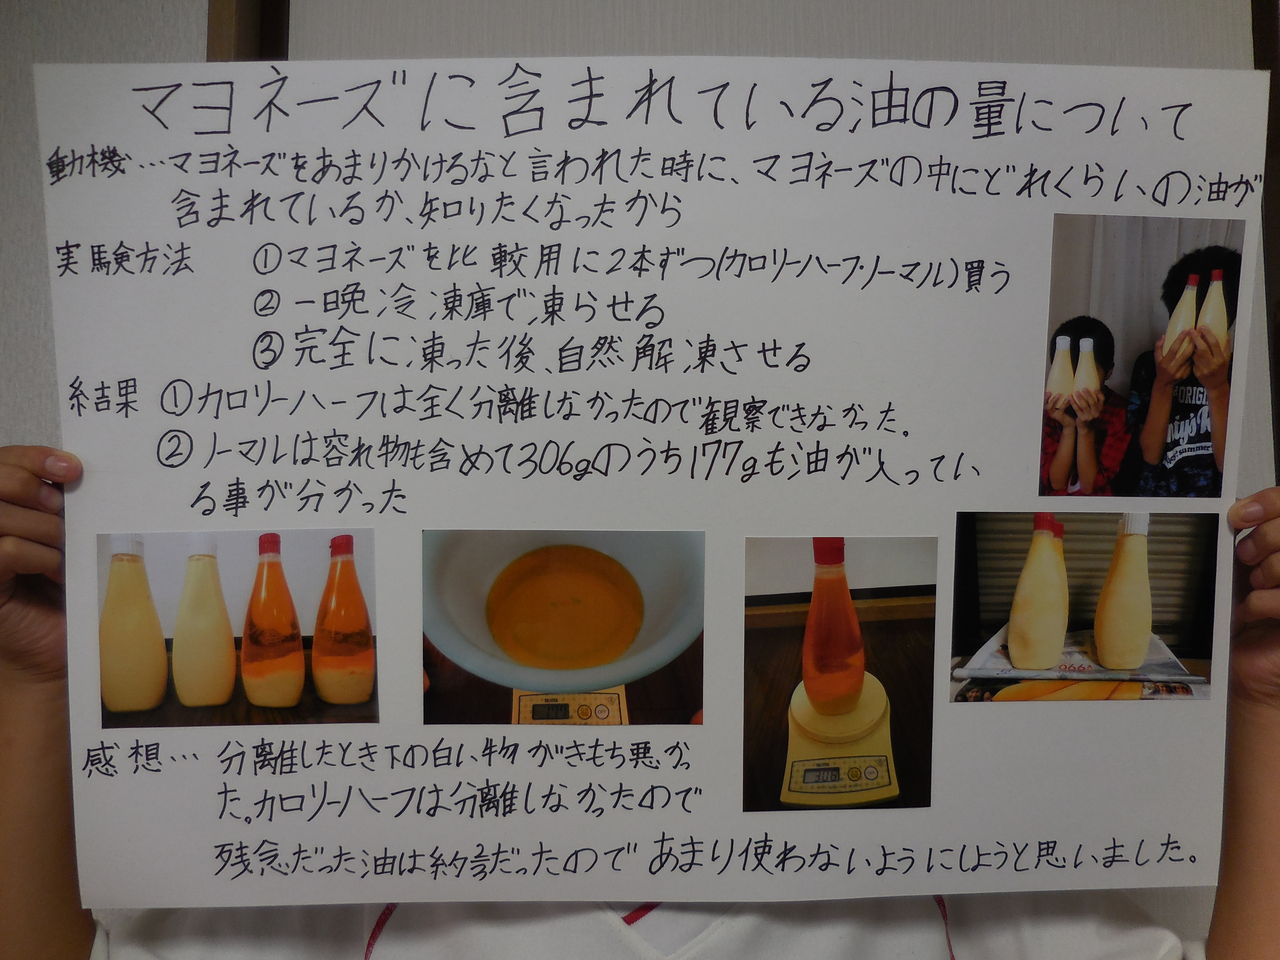 マヨネーズに含まれている油の量について
動機…マヨネーズをあまりかけるなと言われた時に、マヨネーズの中にどれくらいの油が
含まれているか、知りたくなったから
実験方法 ①マヨネーズを比較用に2本ずつ(カロリーハーフ・ノーマル)買う
②一晩冷凍庫で凍らせる
③完全に凍った後、自然解凍させる
結果 ①カロリーハーフは全く分離しなかったので観察できなかった。
②ノーマルは容れ物も含めて306gのうち177gも油が入ってい
る事が分かった
ORIGI
306
感想…分離したとき下の白い物がきもち悪かっ
た。カロリーハーフは分離しなかったので
残念だった油は約2/3だったのであまり使わないようにしようと思いました。